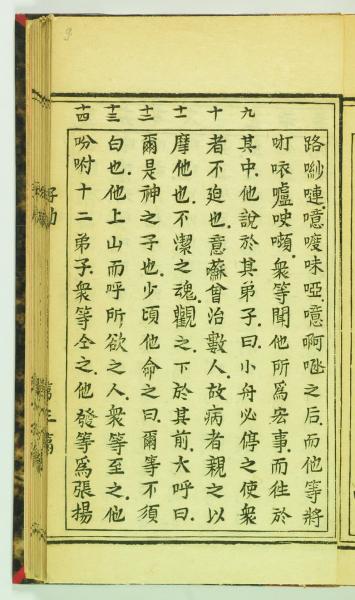 路唦嗹噫嗄咪啞噫啊咝之后而他等將
咑咴嚧𠵽嚬衆等聞他所爲宏事而徃於
九 其中他說於其弟子曰小舟必停之使衆
十 者不廹也意蘇曾治數人故病者親之以
十一 摩他也不潔之魂觀之下於其前大呼曰
十二 爾是神之子也少頃他命之曰爾等不須
十三 白也他上山而呼所欲之人衆等至之他
十四 吩咐十二弟子衆等仝之他發等爲張揚
第三篇